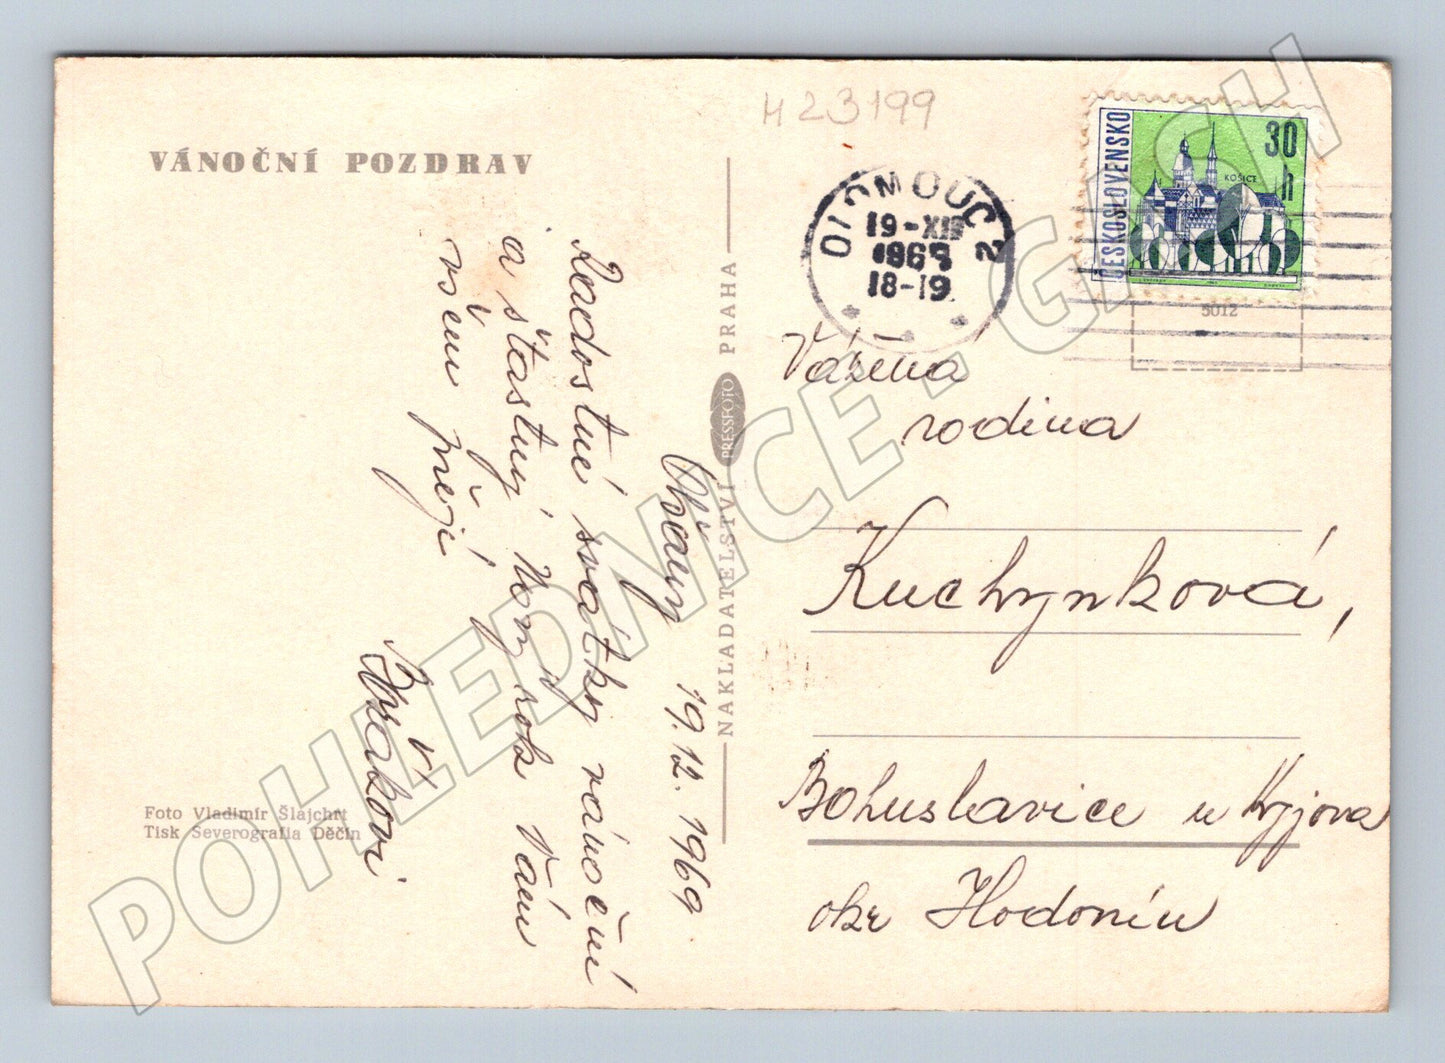 H 23199
VÁNOČNÍ POZDRAV
19. 12. 1969
Radostné svátky vánoční
a šťastný Nový rok Vám
všem přejí
Foto Vladimír Šlajchrt
Tisk Severografia Děčín
NAKLADATELSTVÍ PRESSFOTO PRAHA
OLOMOUC 2
19-XII
1969
18-19
ČESKOSLOVENSKO
30 h
KOŠICE
5012
Vážená
rodina
Kuchynková,
Bohuslavice u Kyjova
okr Hodonín
POHLEDNICE - GASH